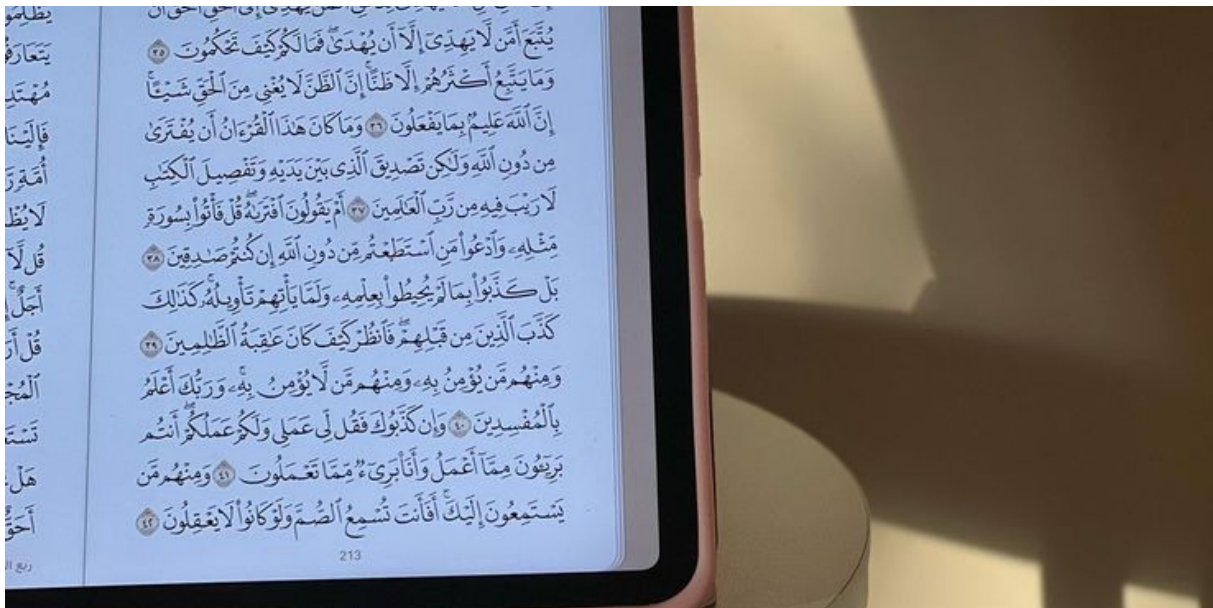 يُتَّبَعَ أَمَّن لَّا يَهِدِّىٓ إِلَّآ أَن يُهْدَىٰ ۖ فَمَا لَكُمْ كَيْفَ تَحْكُمُونَ ٣٥
وَمَا يَتَّبِعُ أَكْثَرُهُمْ إِلَّا ظَنًّا ۚ إِنَّ ٱلظَّنَّ لَا يُغْنِى مِنَ ٱلْحَقِّ شَيْـًٔا ۚ
إِنَّ ٱللَّهَ عَلِيمٌۢ بِمَا يَفْعَلُونَ ٣٦ وَمَا كَانَ هَٰذَا ٱلْقُرْءَانُ أَن يُفْتَرَىٰ
مِن دُونِ ٱللَّهِ وَلَٰكِن تَصْدِيقَ ٱلَّذِى بَيْنَ يَدَيْهِ وَتَفْصِيلَ ٱلْكِتَٰبِ
لَا رَيْبَ فِيهِ مِن رَّبِّ ٱلْعَٰلَمِينَ ٣٧ أَمْ يَقُولُونَ ٱفْتَرَىٰهُ ۖ قُلْ فَأْتُوا۟ بِسُورَةٍ
مِّثْلِهِۦ وَٱدْعُوا۟ مَنِ ٱسْتَطَعْتُم مِّن دُونِ ٱللَّهِ إِن كُنتُمْ صَٰدِقِينَ ٣٨
بَلْ كَذَّبُوا۟ بِمَا لَمْ يُحِيطُوا۟ بِعِلْمِهِۦ وَلَمَّا يَأْتِهِمْ تَأْوِيلُهُۥ ۚ كَذَٰلِكَ
كَذَّبَ ٱلَّذِينَ مِن قَبْلِهِمْ ۖ فَٱنظُرْ كَيْفَ كَانَ عَٰقِبَةُ ٱلظَّٰلِمِينَ ٣٩
وَمِنْهُم مَّن يُؤْمِنُ بِهِۦ وَمِنْهُم مَّن لَّا يُؤْمِنُ بِهِۦ ۚ وَرَبُّكَ أَعْلَمُ
بِٱلْمُفْسِدِينَ ٤٠ وَإِن كَذَّبُوكَ فَقُل لِّى عَمَلِى وَلَكُمْ عَمَلُكُمْ ۖ أَنتُم
بَرِيٓـُٔونَ مِمَّآ أَعْمَلُ وَأَنَا۠ بَرِىٓءٌ مِّمَّا تَعْمَلُونَ ٤١ وَمِنْهُم مَّن
يَسْتَمِعُونَ إِلَيْكَ ۚ أَفَأَنتَ تُسْمِعُ ٱلصُّمَّ وَلَوْ كَانُوا۟ لَا يَعْقِلُونَ ٤٢
213
قُل لَّآ
هَلْ
ربع